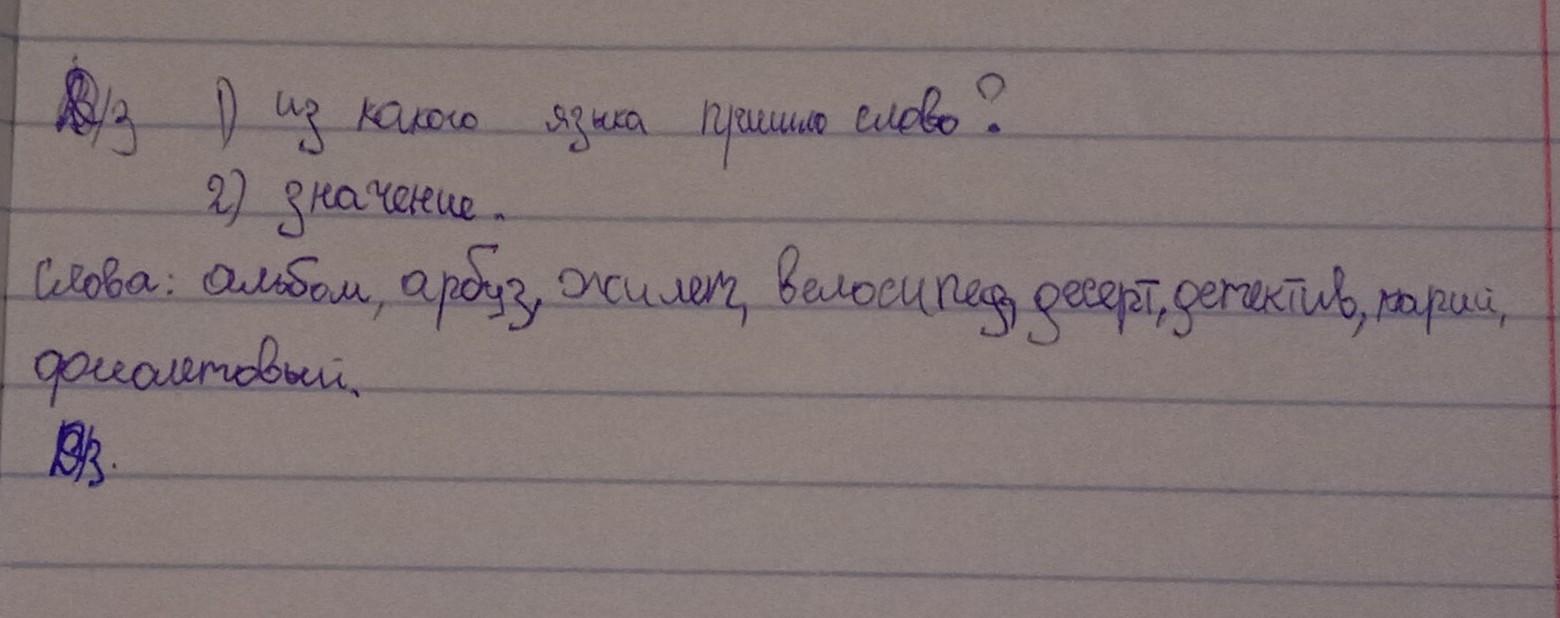 Д/з 1) из какого языка пришло слово?
2) значение.
Слова: альбом, арбуз, жилет, велосипед, десерт, детектив, карий,
фиолетовый.
Д/з.